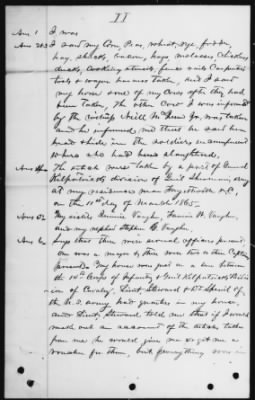 II
Ans. 1 I was
Ans 2&3 I saw my Corn, Peas, wheat, rye, fodder
hay, shucks, bacon, hogs, molasses, chickens
ducks, cooking utensils, fence rails, Carpenters
tools & wagon harness taken, and I saw
my horse and of my Cows after they had
been taken, the other Cow I was informed
by the was taken
and he informed me that he saw her
head & hide in the soldiers encampment
where she had been slaughtered,
The stock were taken by a part of General
Kilpatricks division of Genl Shermans army
at my residence near Fayetteville N.C.
on the 11th day of March 1865.
Ans 5 My sister Vaughn, Fannie H. Vaughn,
and my nephew Stephen G. Vaughn.
Ans 6 Says that there were several officers present,
one was a major & there were two or three Captains
present. My house was just on a line between
the 14th Corps of Infantry & Genl Kilpatricks Divis-
ion of Cavalry. Lieut. Steward & of
the U.S. army had quarters in my house,
and Lieut. Steward told me that if I would
make out an account of the articles taken
from me he would give me or get me a
voucher for them, but everything was in